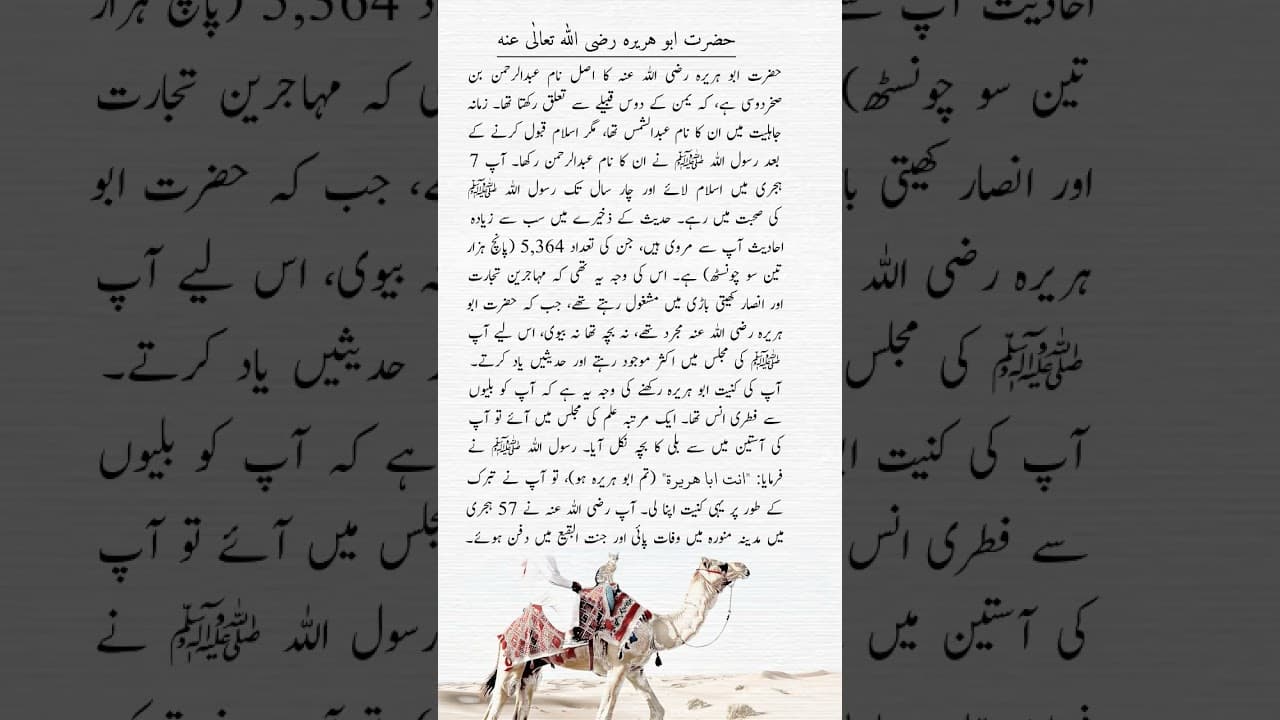 حضرت ابو ھریرہ رضی اللہ تعالٰی عنہ
حضرت ابو ہریرہ رضی اللہ عنہ کا اصل نام عبدالرحمن بن
صخردوسی ہے، کہ یمن کے دوس قبیلے سے تعلق رکھتا تھا۔ زمانہ
جاہلیت میں ان کا نام عبدالشمس تھا، مگر اسلام قبول کرنے کے
بعد رسول اللہ ﷺ نے ان کا نام عبدالرحمن رکھا۔ آپ 7
ہجری میں اسلام لائے اور چار سال تک رسول اللہ ﷺ
کی صحبت میں رہے۔ حدیث کے ذخیرے میں سب سے زیادہ
احادیث آپ سے مروی ہیں، جن کی تعداد 5,364 (پانچ ہزار
تین سو چونسٹھ) ہے۔ اس کی وجہ یہ تھی کہ مہاجرین تجارت
اور انصار کھیتی باڑی میں مشغول رہتے تھے، جب کہ حضرت ابو
ہریرہ رضی اللہ عنہ مجرد تھے، نہ بچہ تھا نہ بیوی، اس لیے آپ
ﷺ کی مجلس میں اکثر موجود رہتے اور حدیثیں یاد کرتے۔
آپ کی کنیت ابو ہریرہ رکھنے کی وجہ یہ ہے کہ آپ کو بلیوں
سے فطری انس تھا۔ ایک مرتبہ علم کی مجلس میں آئے تو آپ
کی آستین میں سے بلی کا بچہ نکل آیا۔ رسول اللہ ﷺ نے
فرمایا: "انت ابا هريرة" (تم ابو ہریرہ ہو)، تو آپ نے تبرک
کے طور پر یہی کنیت اپنا لی۔ آپ رضی اللہ عنہ نے 57 ہجری
میں مدینہ منورہ میں وفات پائی اور جنت البقیع میں دفن ہوئے۔